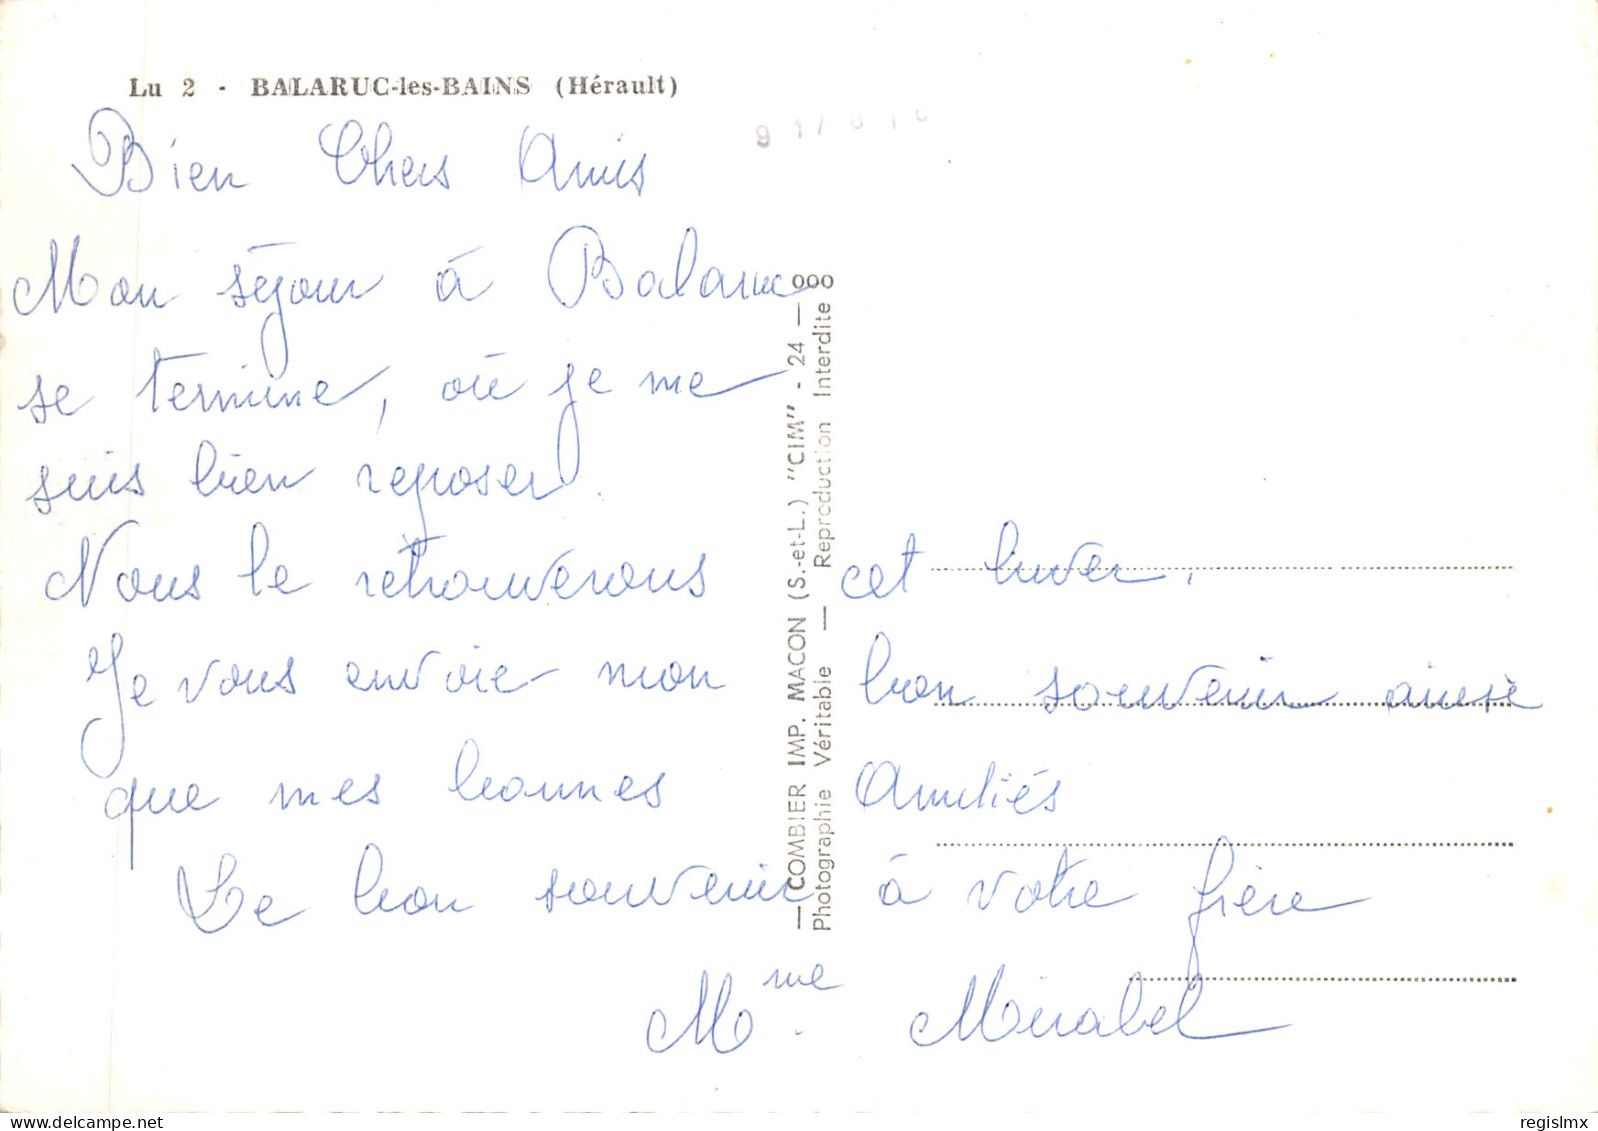 Lu 2 - BALARUC-les-BAINS (Hérault)
Bien Chers Amis
Mon séjour à Balaruc
se termine, où je me
suis bien reposer.
Nous le retrouverons cet hiver.
Je vous envoie mon bon souvenir ainsi
que mes bonnes Amitiés
Le bon souvenir à votre frère
Mme Mirabel
— COMBIER IMP. MACON (S.-et-L.) "CIM" - 24 — ooo
Photographie Véritable — Reproduction Interdite o
regislmx